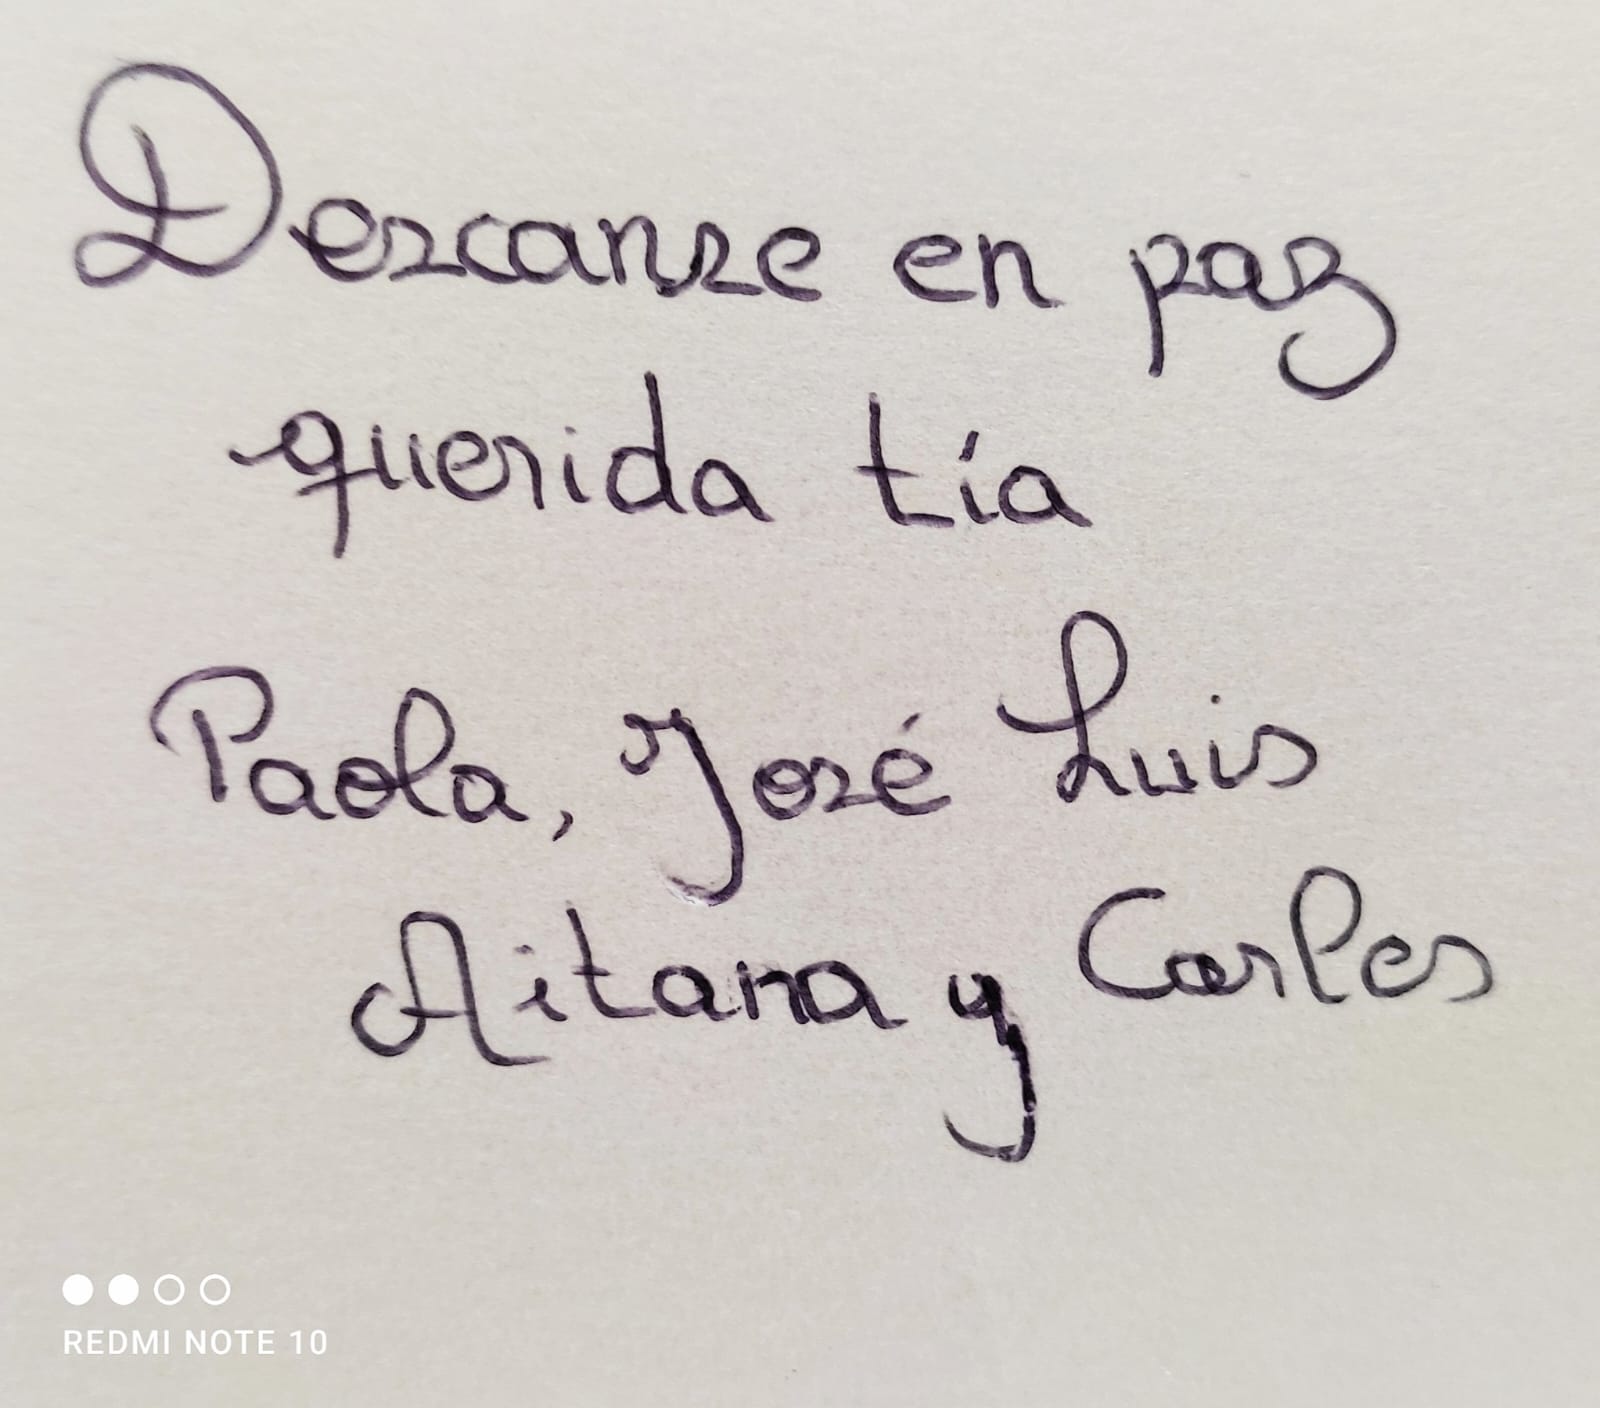 Descanse en paz
querida tía
Paola, José Luis
Aitana y Carlos
REDMI NOTE 10